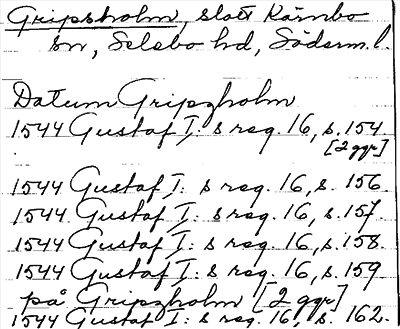 Gripsholm, slott Kärnbo
sn, Selebo hd, Söderm. l.
Datum Gripzholm
1544 Gustaf I: s reg. 16, s. 154
[2 ggr]
1544 Gustaf I: s reg. 16, s. 156.
1544 Gustaf I: s reg. 16, s. 157.
1544 Gustaf I: s reg. 16, s. 158.
1544 Gustaf I: s reg. 16, s. 159
på Gripzholm [2 ggr]
1544 Gustaf I: s reg. 16, s. 162.